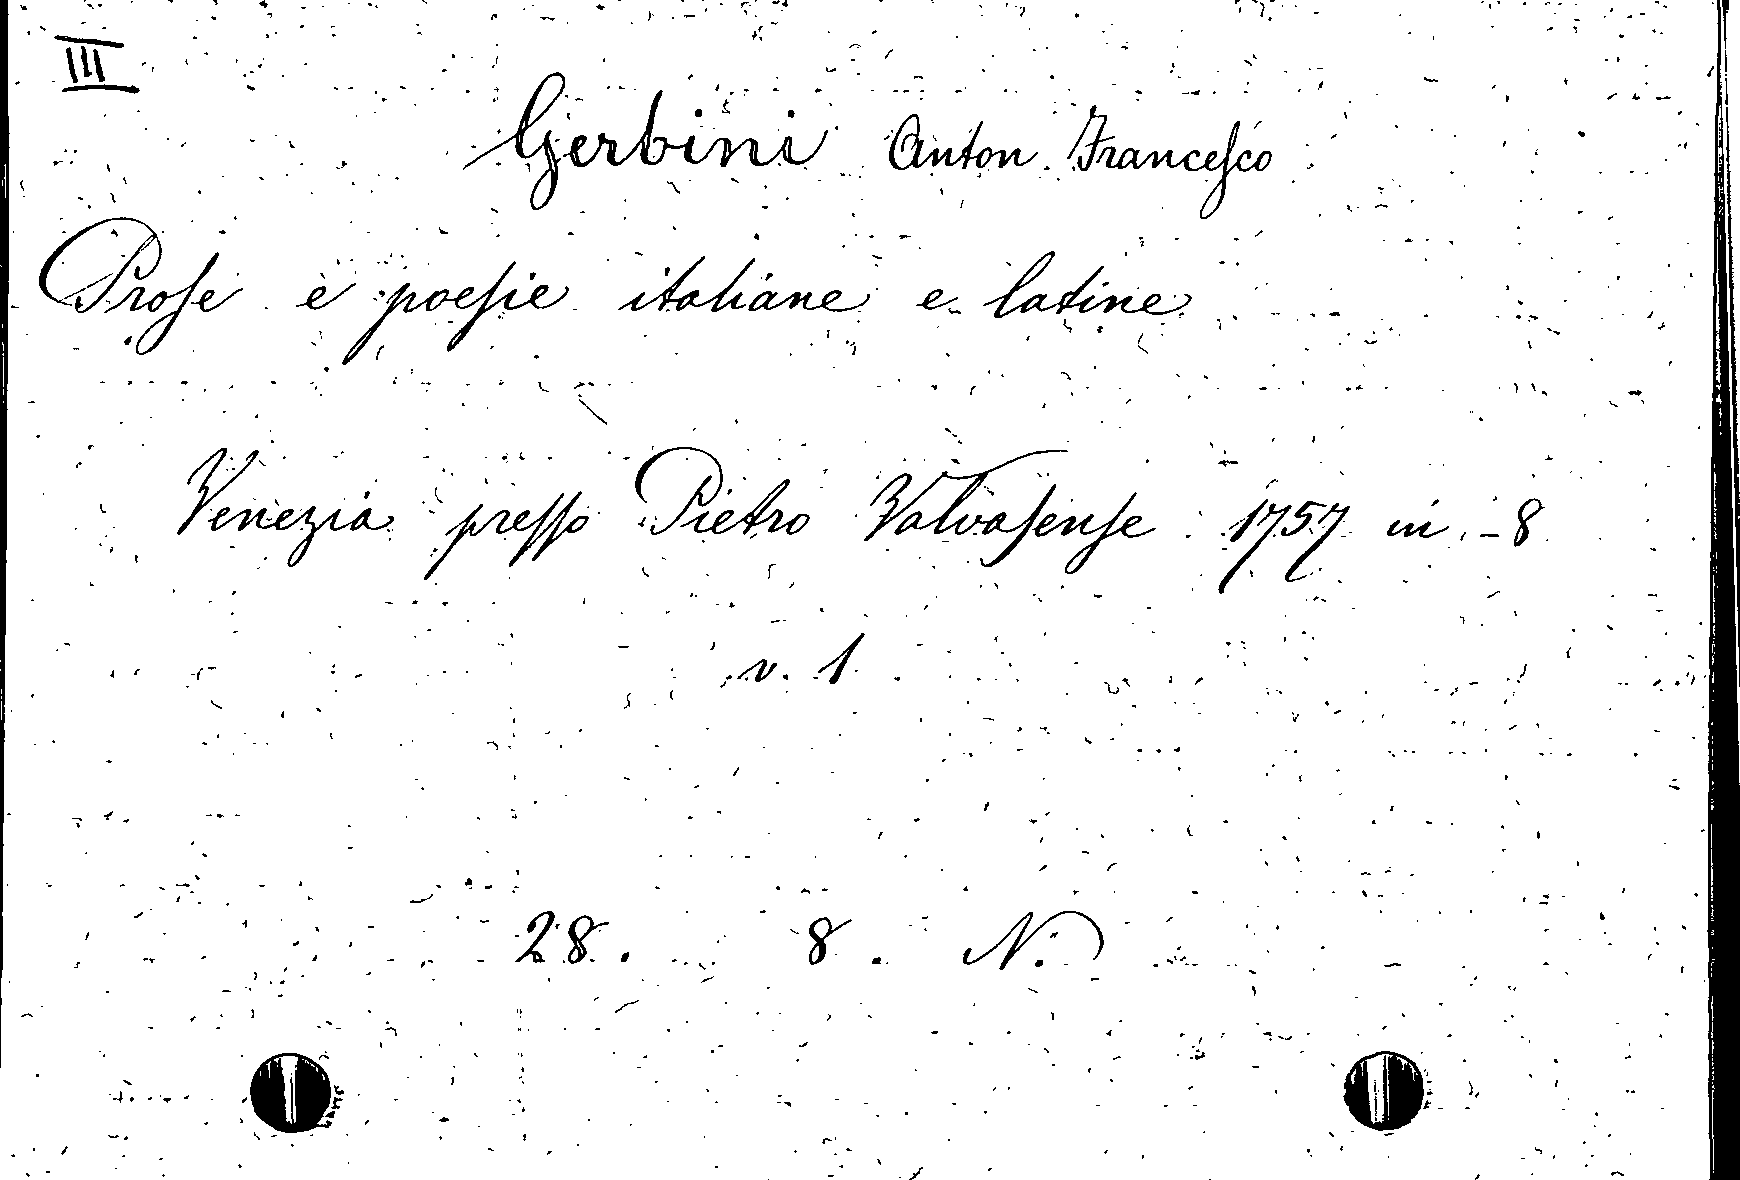 III
Gerbini Anton Francesco
Prose e poesie italiane e latine
Venezia presso Pietro Valvasense 1757 in-8
v. 1
28. 8. N.